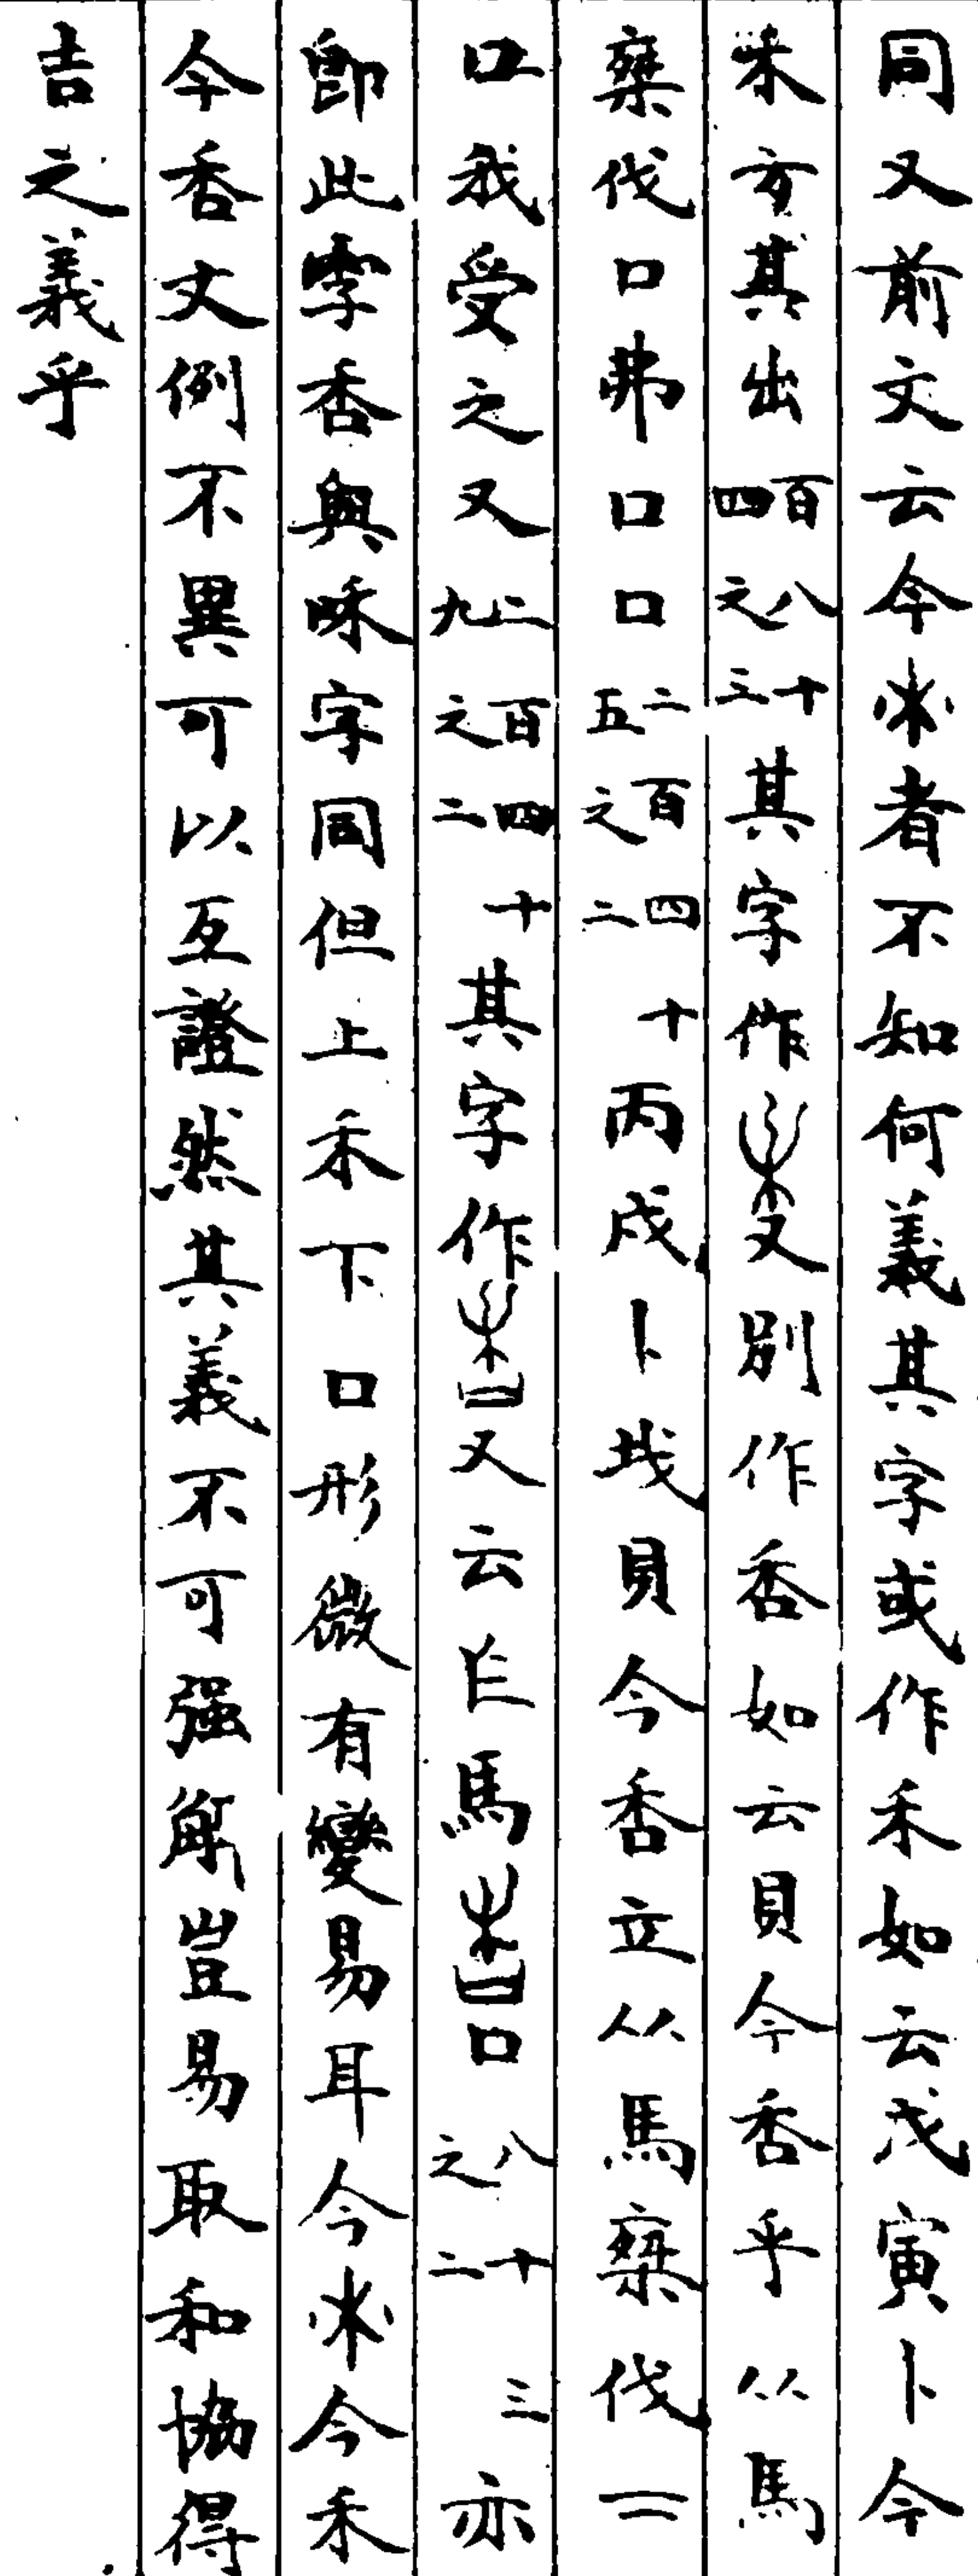 同又前文云今者不知何義其字或作禾如云戊寅卜今
未方其出百八十四之三其字作又別作香如云貝今香乎从馬
伐口弗口口二百四十五之二丙戌卜貝今香立从馬伐二
口我受之又二百四十九之二其字作又云乍馬口八十三之二亦
卽此字香與咊字同但上禾下口形微有變易耳今今禾
今香文例不異可以互證然其義不可强解豈易取和協得
吉之義乎